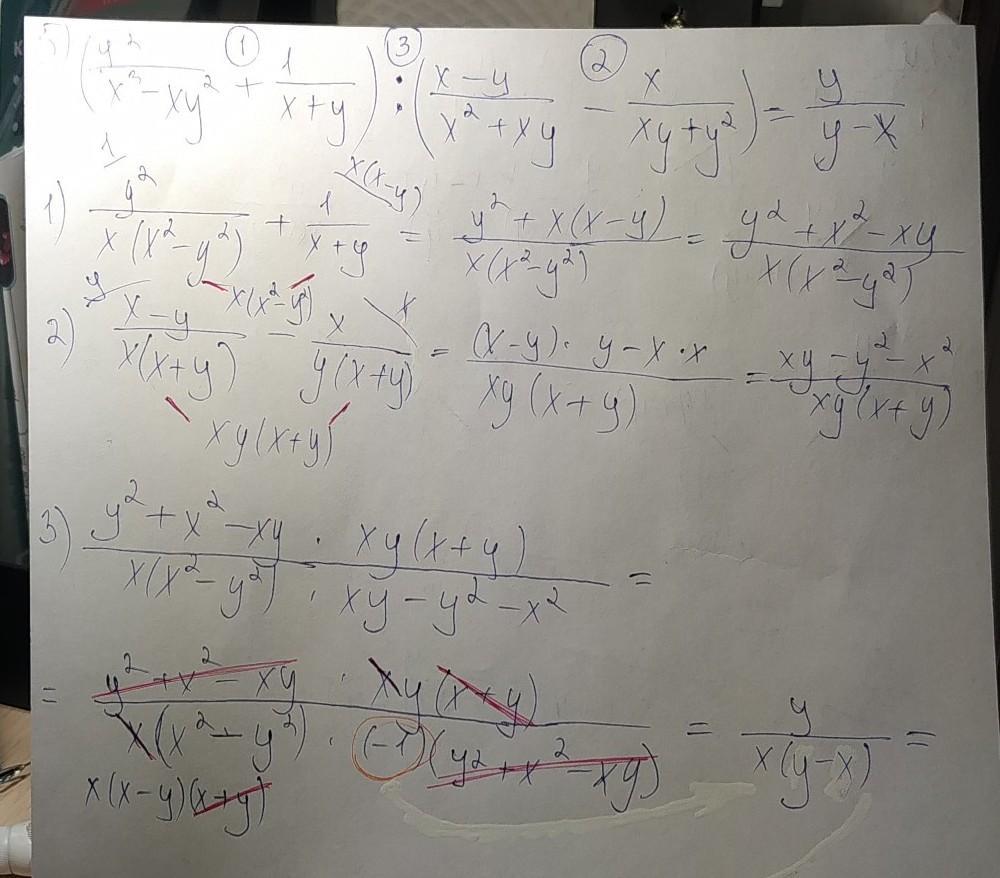 5) (y²/(x³-xy²) + 1/(x+y)) : ((x-y)/(x²+xy) - x/(xy+y²)) = y/(y-x)
① ③ ②
1) y²/(x(x²-y²)) + 1/(x+y) = (y²+x(x-y))/(x(x²-y²)) = (y²+x²-xy)/(x(x²-y²))
1 x(x-y)
x(x²-y²)
2) (x-y)/(x(x+y)) - x/(y(x+y)) = ((x-y)·y-x·x)/(xy(x+y)) = (xy-y²-x²)/(xy(x+y))
y x
xy(x+y)
3) (y²+x²-xy · xy(x+y))/(x(x²-y²) · xy-y²-x²) =
= (y²+x²-xy · xy(x+y))/(x(x²-y²) · (-1)(y²+x²-xy)) = y/(x(y-x)) =
x(x-y)(x+y)